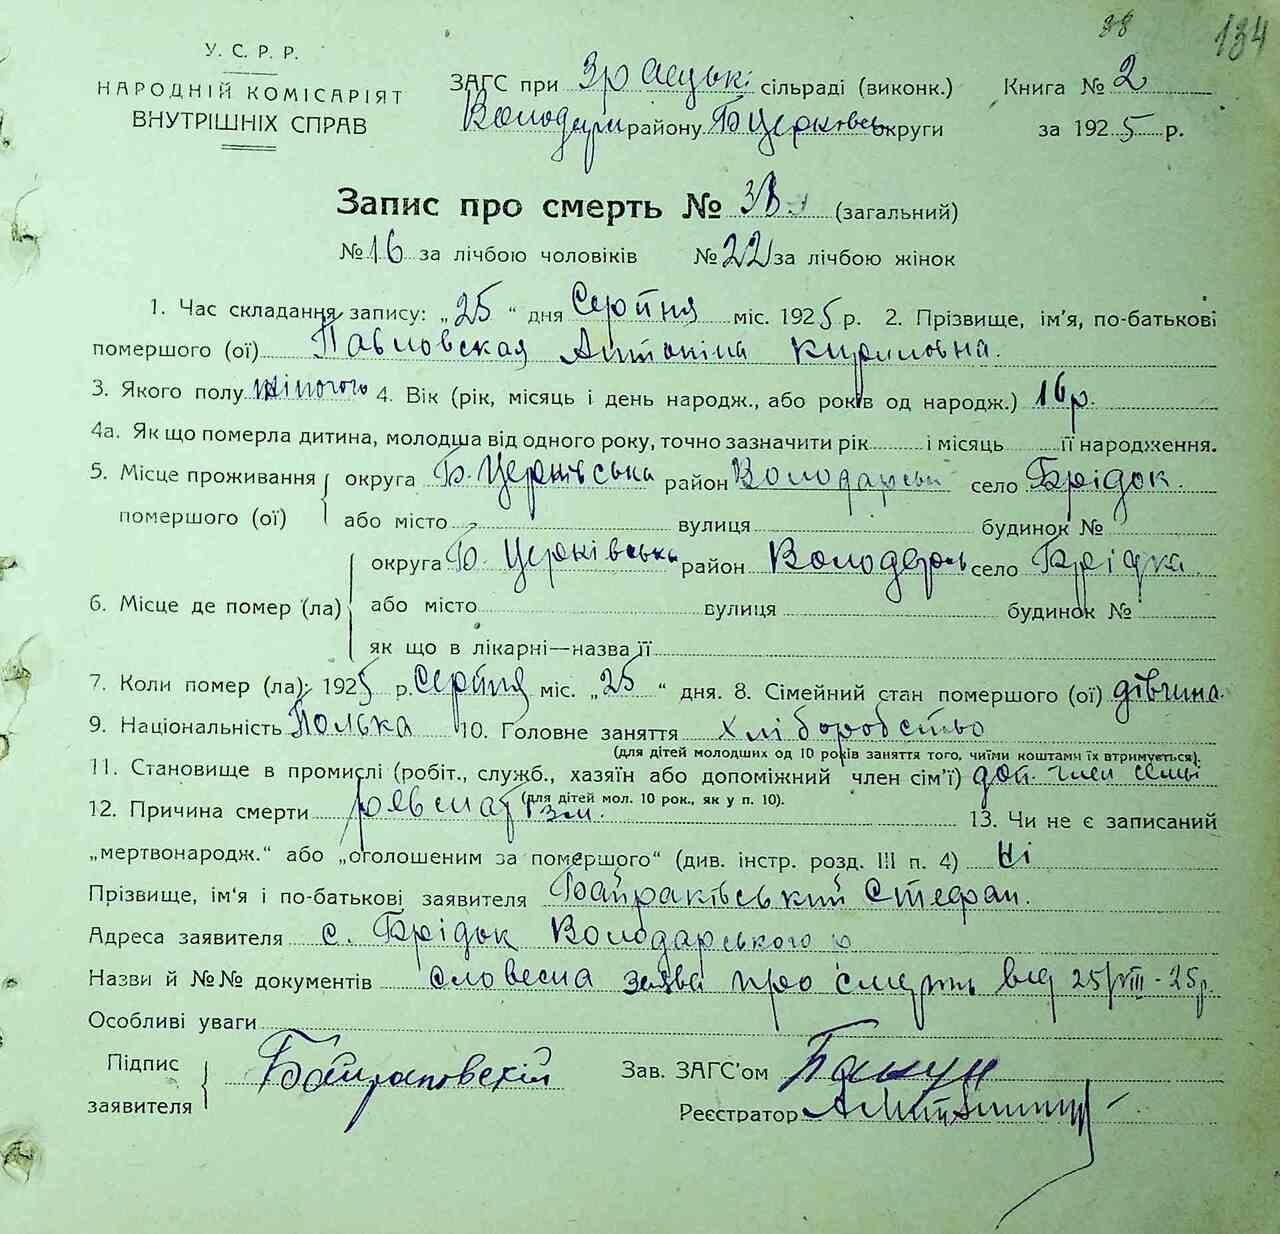 38 134
У. С. Р. Р.
НАРОДНІЙ КОМІСАРІЯТ
ВНУТРІШНІХ СПРАВ
ЗАГС при сільраді (виконк.) Книга № 2
Володарк району Б Церківсь округи за 1925 р.
Запис про смерть № 38 (загальний)
№ 16 за лічбою чоловіків № 22 за лічбою жінок
1. Час складання запису: „25“ дня Серпня міс. 1925 р. 2. Прізвище, ім'я, по-батькові
помершого (ої) Павловская Антоніна Кириловна.
3. Якого полу жіночого 4. Вік (рік, місяць і день народж., або років од народж.) 16 р.
4а. Як що померла дитина, молодша від одного року, точно зазначити рік і місяць її народження.
5. Місце проживання округа Б. Церківська район Володарськ село Брідок.
помершого (ої) або місто вулиця будинок №
округа Б. Церківська район Володарсь село Брідка.
6. Місце де помер (ла) або місто вулиця будинок №
як що в лікарні—назва її
7. Коли помер (ла): 1925 р. Серпня міс. „25“ дня. 8. Сімейний стан помершого (ої) дівчина.
9. Національність Полька 10. Головне заняття Хліборобство
(для дітей молодших од 10 років заняття того, чиїми коштами їх втримується).
11. Становище в промислі (робіт., служб., хазяїн або допоміжний член сім'ї) доп. член семьі
(для дітей мол. 10 рок., як у п. 10).
12. Причина смерти ревматізм. 13. Чи не є записаний
„мертвонародж.“ або „оголошеним за помершого“ (див. інстр. розд. III п. 4) Ні
Прізвище, ім'я і по-батькові заявителя Байраківський Стефан.
Адреса заявителя с. Брідок Володарського р
Назви й №№ документів словесна заява про смерть від 25/VIII - 25 р.
Особливі уваги
Підпис заявителя Байраковскій Зав. ЗАГС'ом
Реєстратор